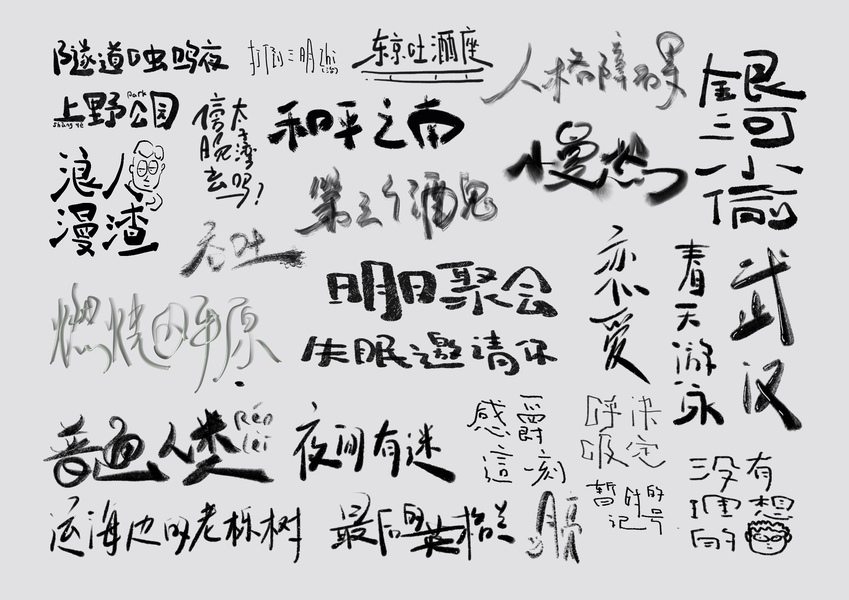 隧道口虫鸣夜
打倒三明zhi
东京吐酒座
人格障碍
上野公园
park
shàng yě
太薄
傍晚去吗？！
和平之南
慢热
銀河小偷
浪人漫渣
第三个酒鬼
吞吐
明日聚会
恋爱
春天游泳
武汉
燃烧的平原
失眠邀请你
普通人类
Rén lèi
夜间有迷
感爵這刻
呼吸决定
暂时的记号
没有理想的
运海边的老栎树
最后的英格兰